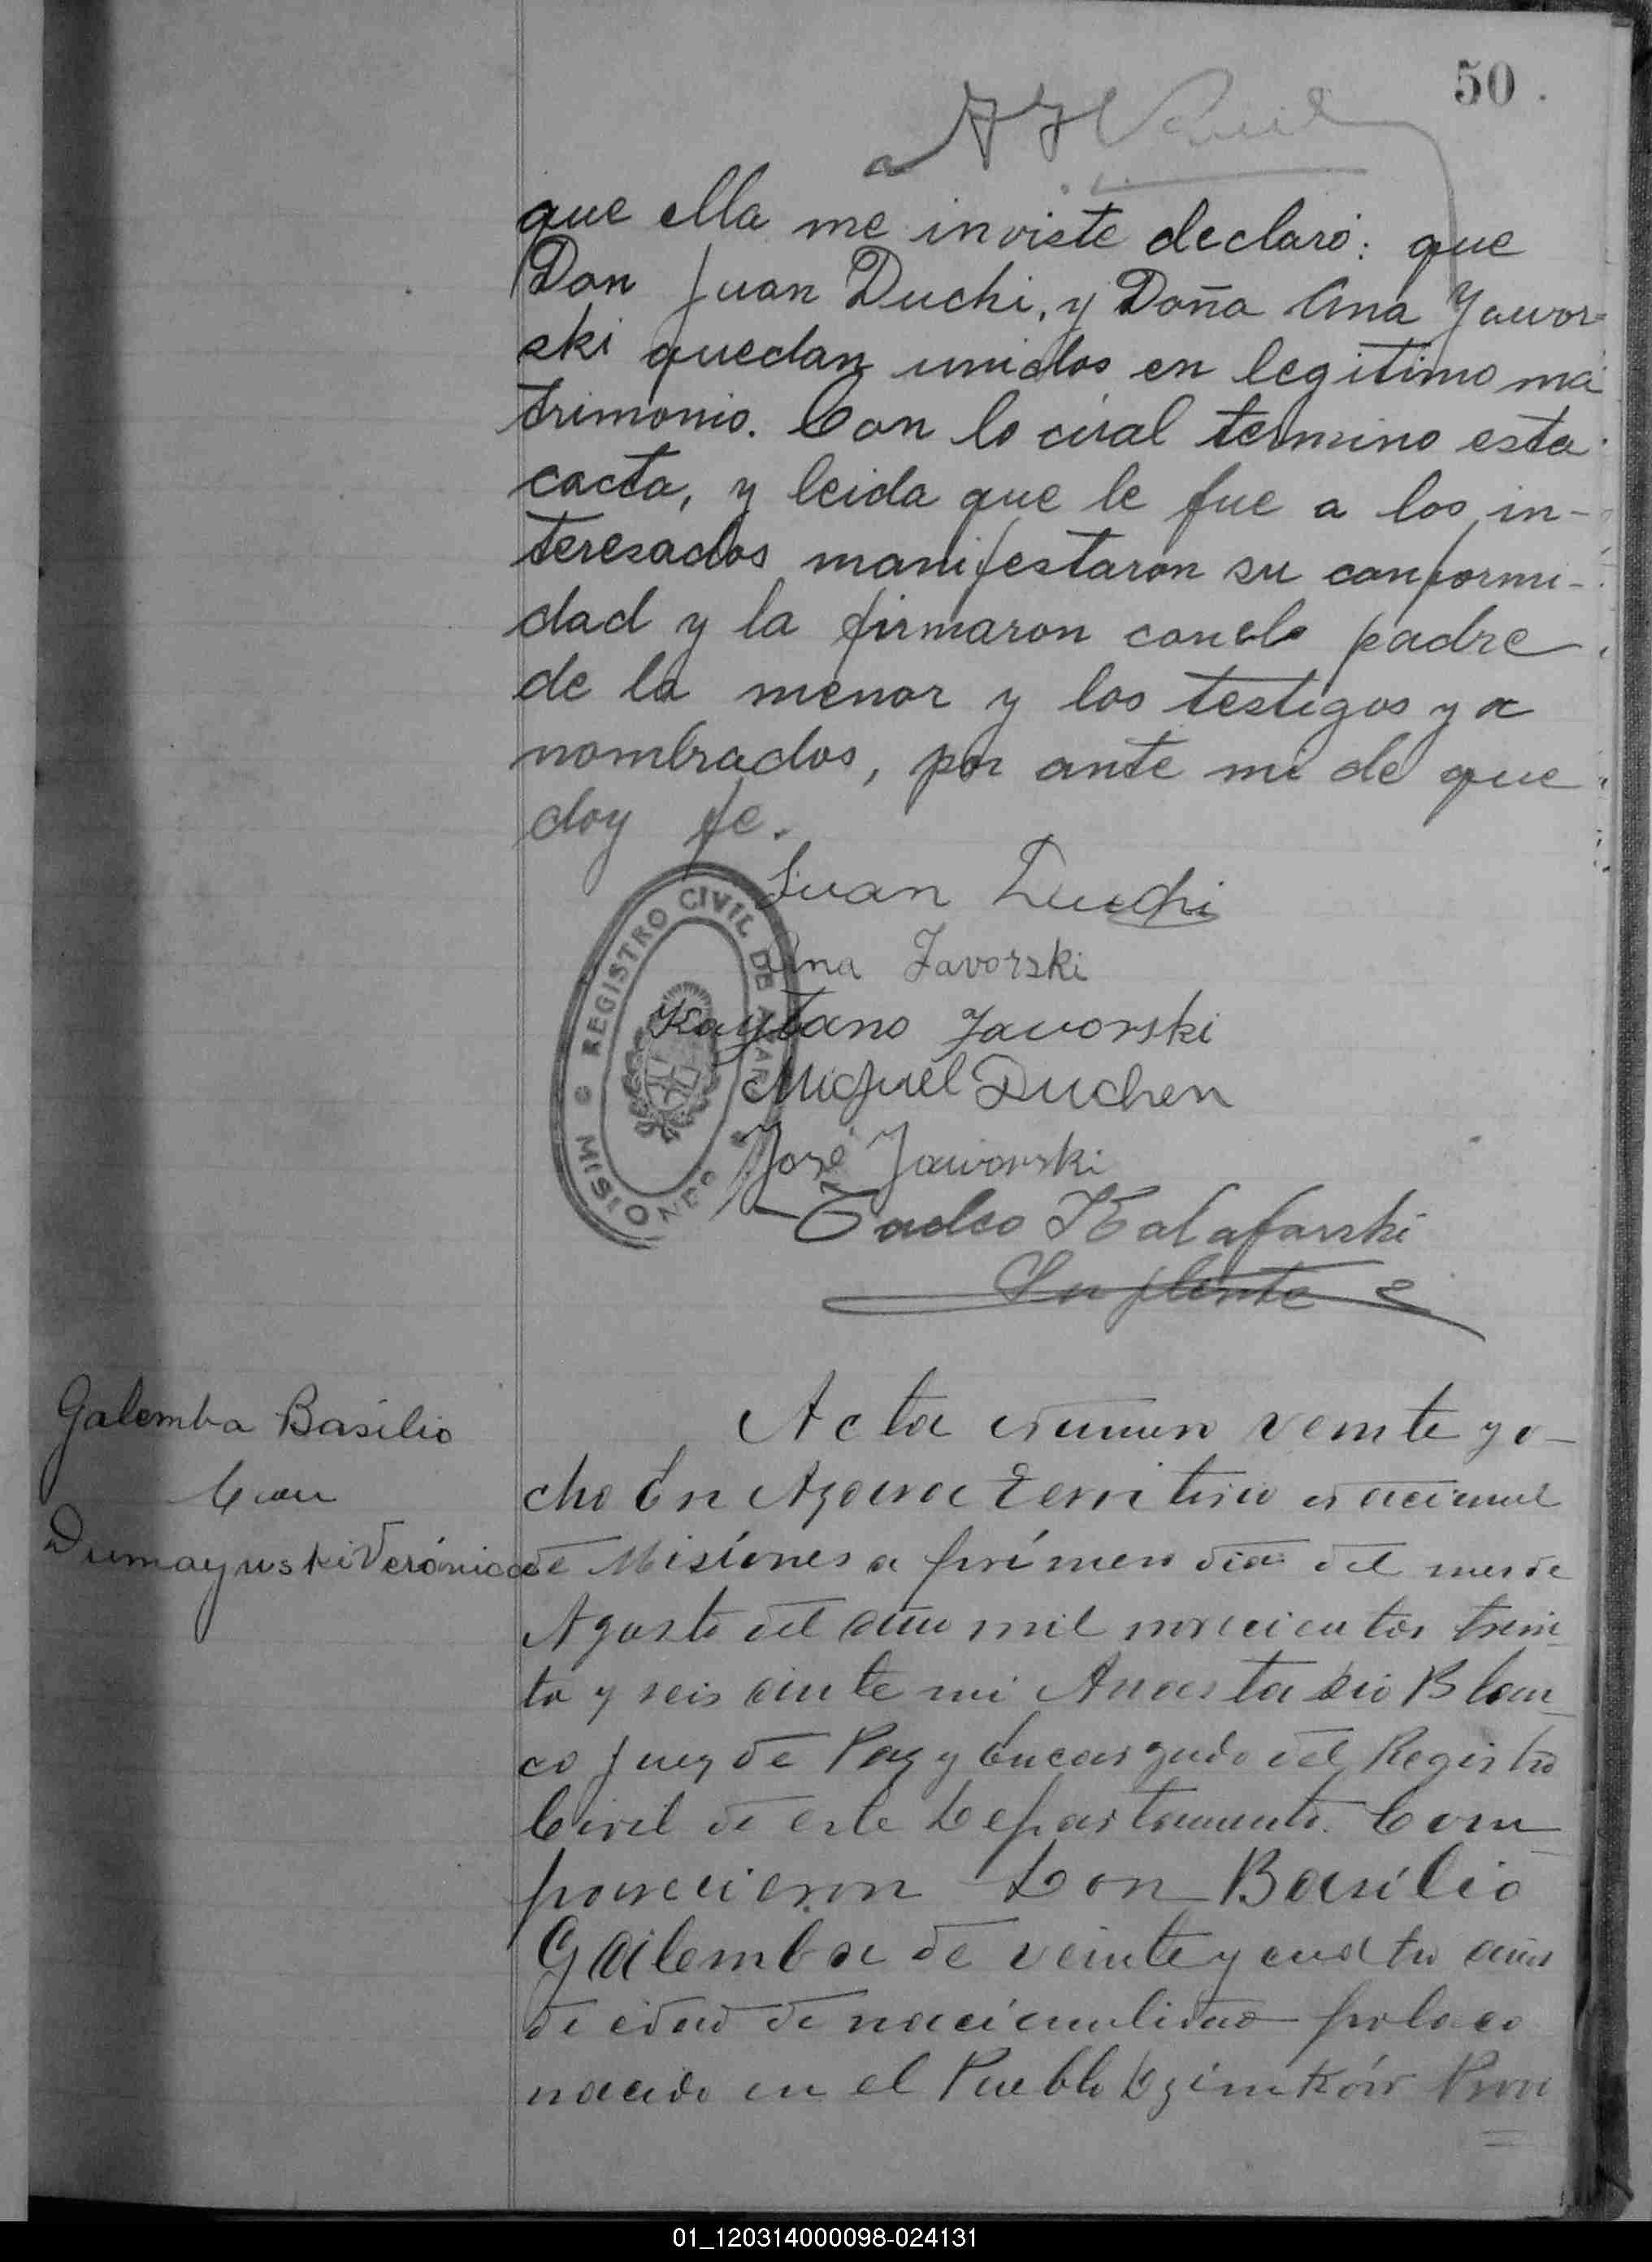 50.
que ella me inviste declaró: que
Don Juan Duchi, y Doña Ana Jawor-
ski quedan unidos en legitimo ma
trimonio. Con lo cúal termino esta
cacta, y leida que le fue a los in-
teresados manifestaron su conformi-
dad y la firmaron conelo padre
de la menor y los testigos ya
nombrados, por ante mi de que
doy fe.
Juan Duchi
Ana Javorski
Kaytano Javorski
Miguel Duchen
José Jaworski
Tadeo Kalafarski
Suplente
REGISTRO CIVIL DE AZARA
MISIONES
Galemba Basilio
Con
Dumayuski Verónica
Acta número veinte y o-
cho En Azara Territorio nacional
de Misiones a primero dia del mes de
Agosto del año mil novecientos trein-
ta y seis ante mi Anastasio Blan-
co Juez de Paz y Encargado del Registro
Civil de este Departamento. Com-
parecieron Don Basilio
Galemba de veinte y cuatro años
de edad de nacionalidad polaco
nacido en el Pueblo Dzintrów Prov
01_120314000098-024131